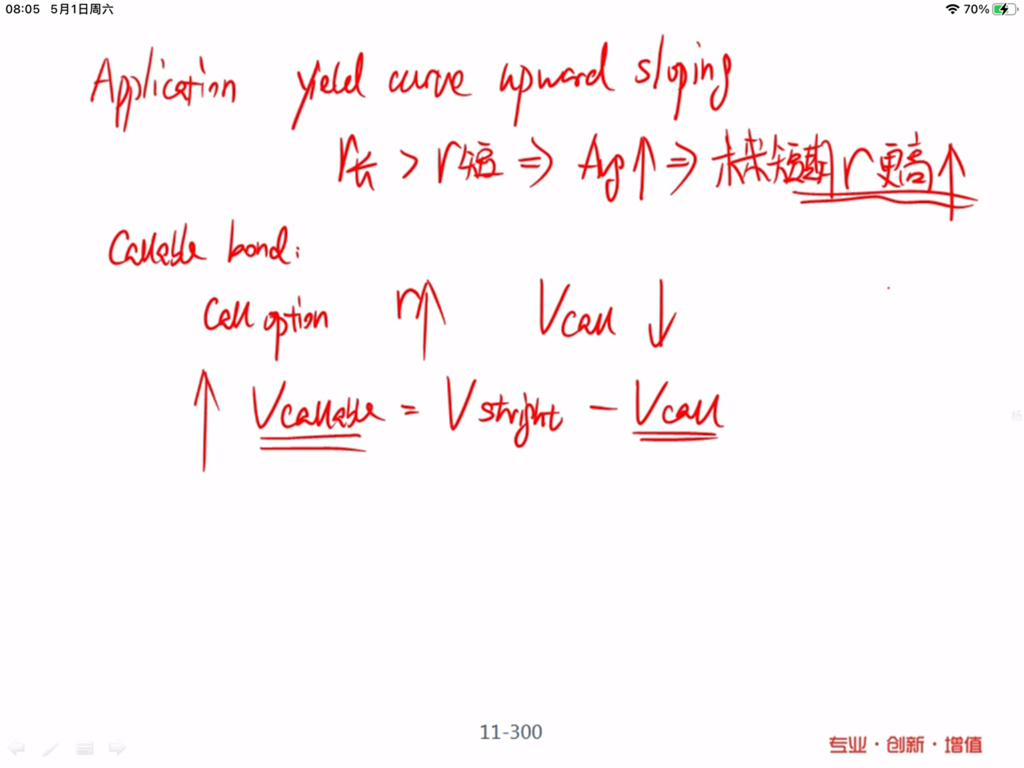 08:05 5月1日周六 70%
Application yield curve upward sloping
r长 > r短 ⇒ Avg↑ ⇒ 未来短期r更高↑
Callable bond:
Call option r↑ Vcall ↓
↑ Vcallable = Vstright − Vcall
杨
11-300
专业·创新·增值